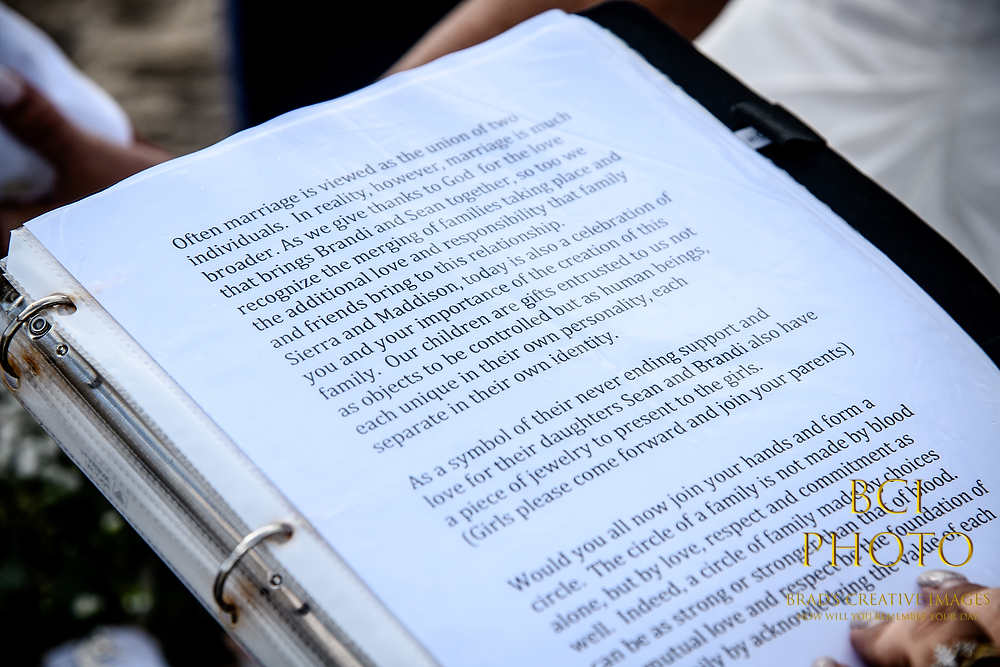 Often marriage is viewed as the union of two
individuals. In reality, however, marriage is much
broader. As we give thanks to God for the love
that brings Brandi and Sean together, so too we
recognize the merging of families taking place and
the additional love and responsibility that family
and friends bring to this relationship.
Sierra and Maddison, today is also a celebration of
you and your importance of the creation of this
family. Our children are gifts entrusted to us not
as objects to be controlled but as human beings,
each unique in their own personality, each
separate in their own identity.
As a symbol of their never ending support and
love for their daughters Sean and Brandi also have
a piece of jewelry to present to the girls.
(Girls please come forward and join your parents)
Would you all now join your hands and form a
circle. The circle of a family is not made by blood
alone, but by love, respect and commitment as
well. Indeed, a circle of family made by choices
can be as strong or stronger than that of blood
mutual love and respect be the foundation of
by acknowledging the value of each
BCI
PHOTO
BRAD'S CREATIVE IMAGES
HOW WILL YOU REMEMBER YOUR DAY